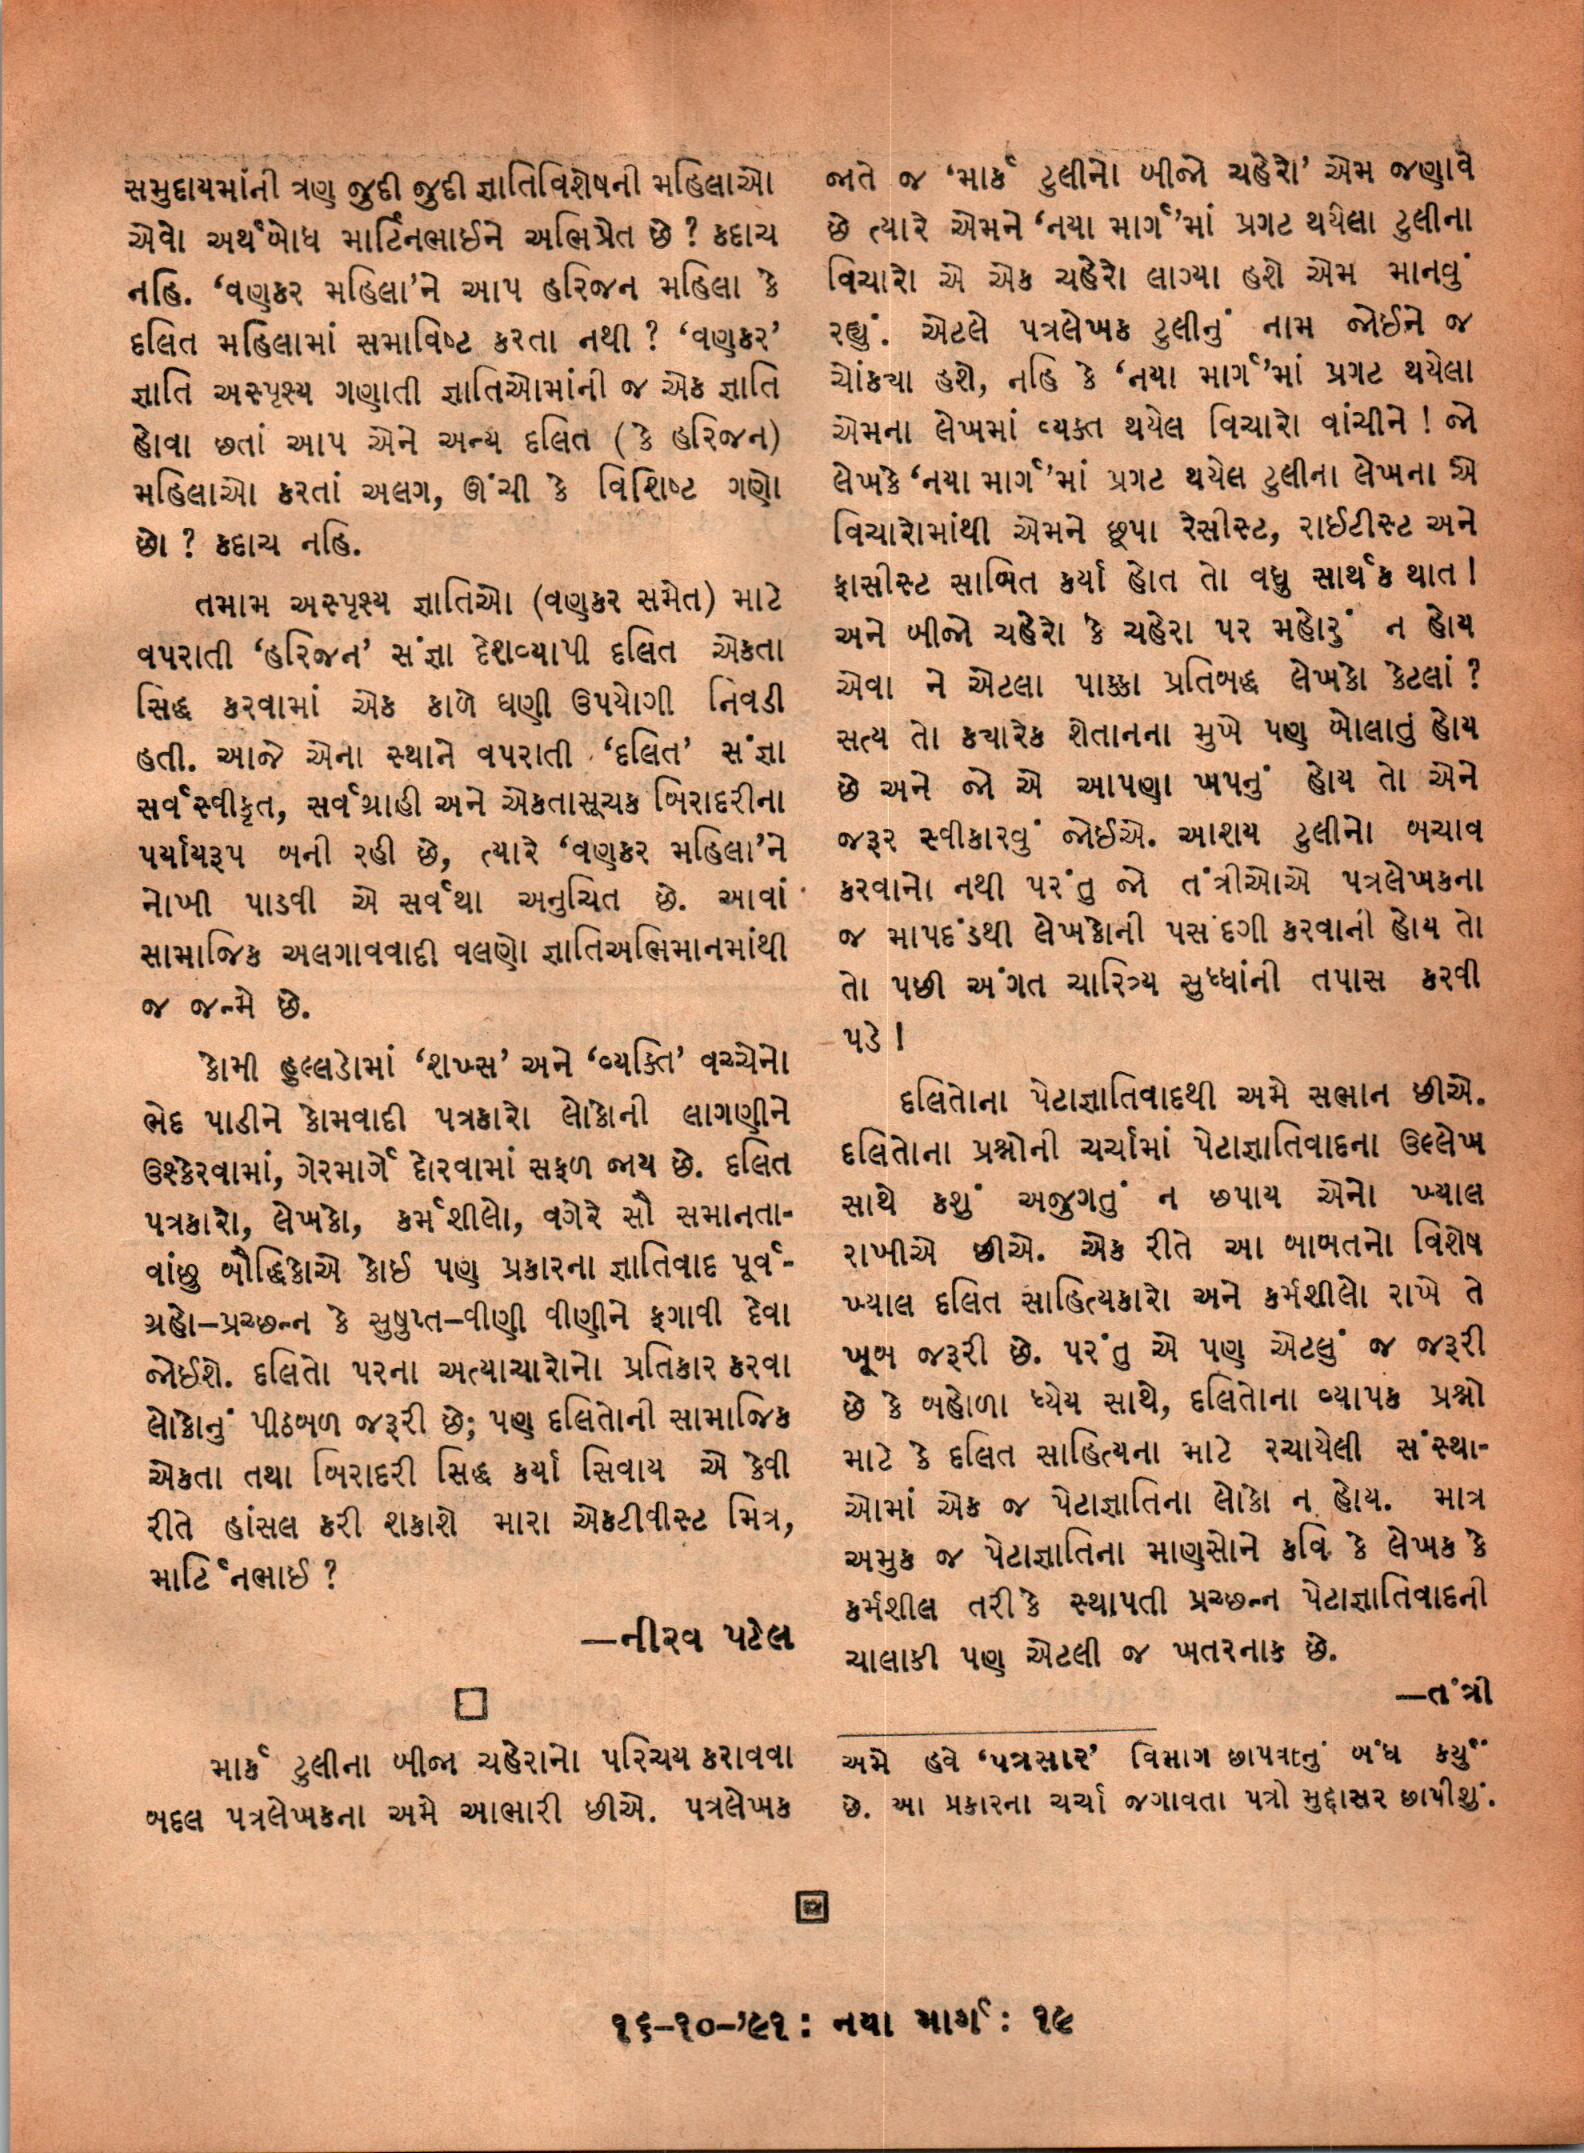 સમુદાયમાંની ત્રણ જુદી જુદી જ્ઞાતિવિશેષની મહિલાઓ
એવો અર્થબોધ માર્ટિનભાઈને અભિપ્રેત છે ? કદાચ
નહિ. ‘વણકર મહિલા’ને આપ હરિજન મહિલા કે
દલિત મહિલામાં સમાવિષ્ટ કરતા નથી ? ‘વણકર’
જ્ઞાતિ અસ્પૃશ્ય ગણાતી જ્ઞાતિઓમાંની જ એક જ્ઞાતિ
હોવા છતાં આપ એને અન્ય દલિત (કે હરિજન)
મહિલાઓ કરતાં અલગ, ઊંચી કે વિશિષ્ટ ગણો
છો ? કદાચ નહિ.
તમામ અસ્પૃશ્ય જ્ઞાતિઓ (વણકર સમેત) માટે
વપરાતી ‘હરિજન’ સંજ્ઞા દેશવ્યાપી દલિત એકતા
સિદ્ધ કરવામાં એક કાળે ઘણી ઉપયોગી નિવડી
હતી. આજે એના સ્થાને વપરાતી ‘દલિત’ સંજ્ઞા
સર્વસ્વીકૃત, સર્વગ્રાહી અને એકતાસૂચક બિરાદરીના
પર્યાયરૂપ બની રહી છે, ત્યારે ‘વણકર મહિલા’ને
નોખી પાડવી એ સર્વથા અનુચિત છે. આવાં
સામાજિક અલગાવવાદી વલણો જ્ઞાતિઅભિમાનમાંથી
જ જન્મે છે.
કોમી હુલ્લડોમાં ‘શખ્સ’ અને ‘વ્યક્તિ’ વચ્ચેનો
ભેદ પાડીને કોમવાદી પત્રકારો લોકોની લાગણીને
ઉશ્કેરવામાં, ગેરમાર્ગે દોરવામાં સફળ જાય છે. દલિત
પત્રકારો, લેખકો, કર્મશીલો, વગેરે સૌ સમાનતા-
વાંછુ બૌદ્ધિકોએ કોઈ પણ પ્રકારના જ્ઞાતિવાદ પૂર્વ-
ગ્રહો–પ્રચ્છન્ન કે સુષુપ્ત–વીણી વીણીને ફગાવી દેવા
જોઈશે. દલિતો પરના અત્યાચારોનો પ્રતિકાર કરવા
લોકોનું પીઠબળ જરૂરી છે; પણ દલિતોની સામાજિક
એકતા તથા બિરાદરી સિદ્ધ કર્યા સિવાય એ કેવી
રીતે હાંસલ કરી શકાશે મારા એકટીવીસ્ટ મિત્ર,
માર્ટિનભાઈ ?
—નીરવ પટેલ
માર્ક ટુલીના બીજા ચહેરાનો પરિચય કરાવવા
બદલ પત્રલેખકના અમે આભારી છીએ. પત્રલેખક
જાતે જ ‘માર્ક ટુલીનો બીજો ચહેરો’ એમ જણાવે
છે ત્યારે એમને ‘નયા માર્ગ’માં પ્રગટ થયેલા ટુલીના
વિચારો એ એક ચહેરો લાગ્યા હશે એમ માનવું
રહ્યું. એટલે પત્રલેખક ટુલીનું નામ જોઈને જ
ચોંક્યા હશે, નહિ કે ‘નયા માર્ગ’માં પ્રગટ થયેલા
એમના લેખમાં વ્યક્ત થયેલ વિચારો વાંચીને ! જો
લેખકે ‘નયા માર્ગ’માં પ્રગટ થયેલ ટુલીના લેખના એ
વિચારોમાંથી એમને છૂપા રેસીસ્ટ, રાઈટીસ્ટ અને
ફાસીસ્ટ સાબિત કર્યા હોત તો વધુ સાર્થક થાત !
અને બીજો ચહેરો કે ચહેરા પર મહોરું ન હોય
એવા ને એટલા પાક્કા પ્રતિબદ્ધ લેખકો કેટલાં ?
સત્ય તો ક્યારેક શેતાનના મુખે પણ બોલાતું હોય
છે અને જો એ આપણા ખપનું હોય તો એને
જરૂર સ્વીકારવું જોઈએ. આશય ટુલીનો બચાવ
કરવાનો નથી પરંતુ જો તંત્રીઓએ પત્રલેખકના
જ માપદંડથી લેખકોની પસંદગી કરવાની હોય તો
તો પછી અંગત ચારિત્ર્ય સુધ્ધાંની તપાસ કરવી
પડે !
દલિતોના પેટાજ્ઞાતિવાદથી અમે સભાન છીએ.
દલિતોના પ્રશ્નોની ચર્ચામાં પેટાજ્ઞાતિવાદના ઉલ્લેખ
સાથે કશું અજુગતું ન છપાય એનો ખ્યાલ
રાખીએ છીએ. એક રીતે આ બાબતનો વિશેષ
ખ્યાલ દલિત સાહિત્યકારો અને કર્મશીલો રાખે તે
ખૂબ જરૂરી છે. પરંતુ એ પણ એટલું જ જરૂરી
છે કે બહોળા ધ્યેય સાથે, દલિતોના વ્યાપક પ્રશ્નો
માટે કે દલિત સાહિત્યના માટે રચાયેલી સંસ્થા-
ઓમાં એક જ પેટાજ્ઞાતિના લોકો ન હોય. માત્ર
અમુક જ પેટાજ્ઞાતિના માણસોને કવિ કે લેખક કે
કર્મશીલ તરીકે સ્થાપતી પ્રચ્છન્ન પેટાજ્ઞાતિવાદની
ચાલાકી પણ એટલી જ ખતરનાક છે.
—તંત્રી
અમે હવે ‘પત્રસાર’ વિભાગ છાપવાનું બંધ કર્યું
છે. આ પ્રકારના ચર્ચા જગાવતા પત્રો મુદ્દાસર છાપીશું.
૧૬–૧૦–’૯૧ : નયા માર્ગ : ૧૯